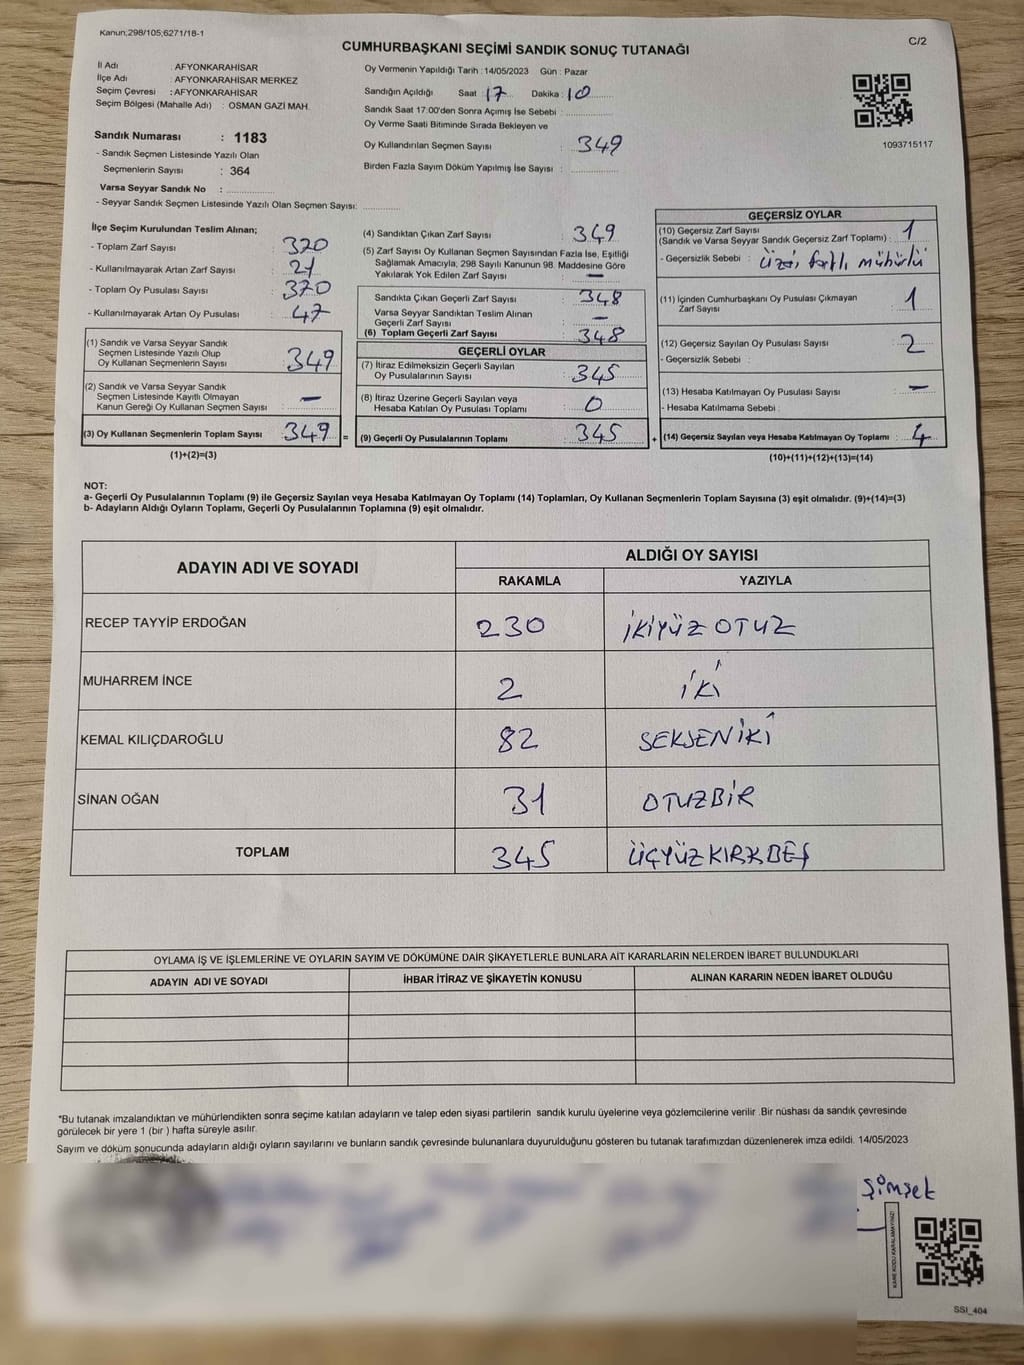 Kanun;298/105;6271/18-1
CUMHURBAŞKANI SEÇİMİ SANDIK SONUÇ TUTANAĞI
C/2
İl Adı : AFYONKARAHİSAR
İlçe Adı : AFYONKARAHİSAR MERKEZ
Seçim Çevresi : AFYONKARAHİSAR
Seçim Bölgesi (Mahalle Adı) : OSMAN GAZİ MAH.
Sandık Numarası : 1183
- Sandık Seçmen Listesinde Yazılı Olan
Seçmenlerin Sayısı : 364
Varsa Seyyar Sandık No :
- Seyyar Sandık Seçmen Listesinde Yazılı Olan Seçmen Sayısı:
Oy Vermenin Yapıldığı Tarih : 14/05/2023 Gün : Pazar
Sandığın Açıldığı Saat 17 Dakika : 10
Sandık Saat 17:00'den Sonra Açımış İse Sebebi :
Oy Verme Saati Bitiminde Sırada Bekleyen ve
Oy Kullandırılan Seçmen Sayısı : 349
Birden Fazla Sayım Döküm Yapılmış İse Sayısı :
1093715117
İlçe Seçim Kurulundan Teslim Alınan;
- Toplam Zarf Sayısı : 320
- Kullanılmayarak Artan Zarf Sayısı : 21
- Toplam Oy Pusulası Sayısı : 370
- Kullanılmayarak Artan Oy Pusulası : 47
(1) Sandık ve Varsa Seyyar Sandık
Seçmen Listesinde Yazılı Olup
Oy Kullanan Seçmenlerin Sayısı : 349
(2) Sandık ve Varsa Seyyar Sandık
Seçmen Listesinde Kayıtlı Olmayan
Kanun Gereği Oy Kullanan Seçmen Sayısı : –
(3) Oy Kullanan Seçmenlerin Toplam Sayısı : 349
(1)+(2)=(3)
(4) Sandıktan Çıkan Zarf Sayısı : 349
(5) Zarf Sayısı Oy Kullanan Seçmen Sayısından Fazla İse, Eşitliği
Sağlamak Amacıyla, 298 Sayılı Kanunun 98. Maddesine Göre
Yakılarak Yok Edilen Zarf Sayısı : –
Sandıkta Çıkan Geçerli Zarf Sayısı : 348
Varsa Seyyar Sandıktan Teslim Alınan
Geçerli Zarf Sayısı : –
(6) Toplam Geçerli Zarf Sayısı : 348
GEÇERLİ OYLAR
(7) İtiraz Edilmeksizin Geçerli Sayılan
Oy Pusulalarının Sayısı : 345
(8) İtiraz Üzerine Geçerli Sayılan veya
Hesaba Katılan Oy Pusulası Toplamı : 0
= (9) Geçerli Oy Pusulalarının Toplamı : 345
GEÇERSİZ OYLAR
(10) Geçersiz Zarf Sayısı
(Sandık ve Varsa Seyyar Sandık Geçersiz Zarf Toplamı) : 1
- Geçersizlik Sebebi : Üzeri farklı mühürlü
(11) İçinden Cumhurbaşkanı Oy Pusulası Çıkmayan
Zarf Sayısı : 1
(12) Geçersiz Sayılan Oy Pusulası Sayısı : 2
- Geçersizlik Sebebi :
(13) Hesaba Katılmayan Oy Pusulası Sayısı : –
- Hesaba Katılmama Sebebi :
+ (14) Geçersiz Sayılan veya Hesaba Katılmayan Oy Toplamı : 4
(10)+(11)+(12)+(13)=(14)
NOT:
a- Geçerli Oy Pusulalarının Toplamı (9) ile Geçersiz Sayılan veya Hesaba Katılmayan Oy Toplamı (14) Toplamları, Oy Kullanan Seçmenlerin Toplam Sayısına (3) eşit olmalıdır. (9)+(14)=(3)
b- Adayların Aldığı Oyların Toplamı, Geçerli Oy Pusulalarının Toplamına (9) eşit olmalıdır.
ADAYIN ADI VE SOYADI ALDIĞI OY SAYISI
RAKAMLA YAZIYLA
RECEP TAYYİP ERDOĞAN 230 İKİYÜZ OTUZ
MUHARREM İNCE 2 İKİ
KEMAL KILIÇDAROĞLU 82 SEKSENİKİ
SİNAN OĞAN 31 OTUZBİR
TOPLAM 345 ÜÇYÜZKIRKBEŞ
OYLAMA İŞ VE İŞLEMLERİNE VE OYLARIN SAYIM VE DÖKÜMÜNE DAİR ŞİKAYETLERLE BUNLARA AİT KARARLARIN NELERDEN İBARET BULUNDUKLARI
ADAYIN ADI VE SOYADI İHBAR İTİRAZ VE ŞİKAYETİN KONUSU ALINAN KARARIN NEDEN İBARET OLDUĞU
*Bu tutanak imzalandıktan ve mühürlendikten sonra seçime katılan adayların ve talep eden siyasi partilerin sandık kurulu üyelerine veya gözlemcilerine verilir .Bir nüshası da sandık çevresinde
görülecek bir yere 1 (bir ) hafta süreyle asılır.
Sayım ve döküm sonucunda adayların aldığı oyların sayılarını ve bunların sandık çevresinde bulunanlara duyurulduğunu gösteren bu tutanak tarafımızdan düzenlenerek imza edildi. 14/05/2023
Şimşek
KARE KODU KARALAMAYINIZ!
SSI_404